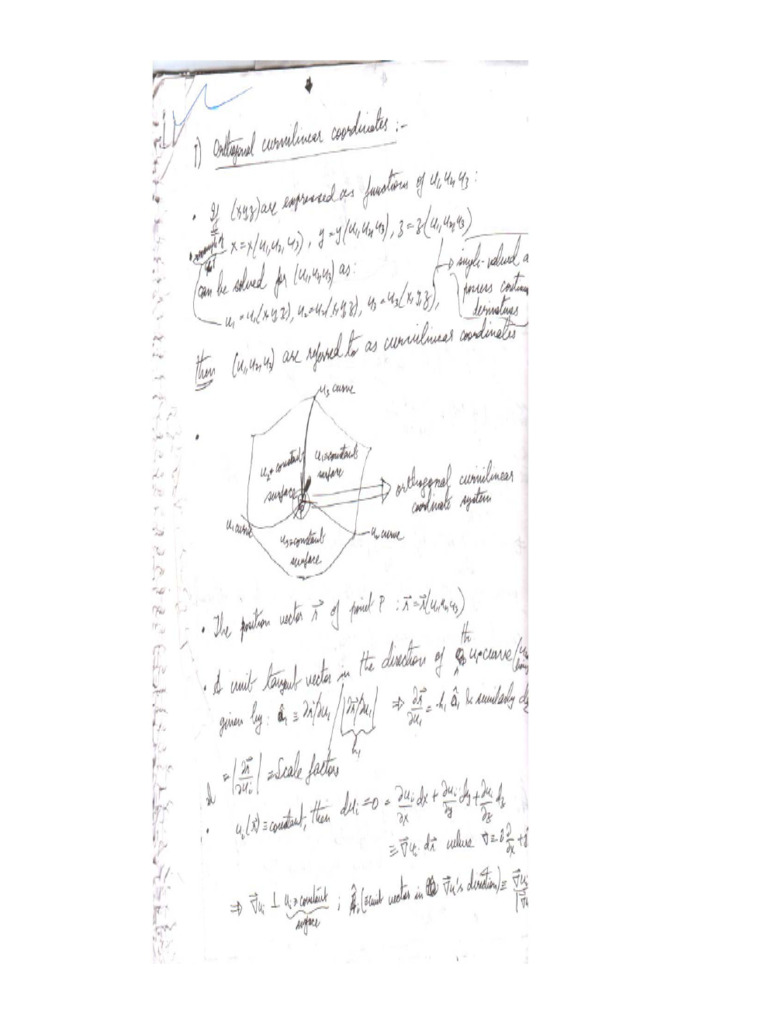 1) Orthogonal curvilinear coordinates :-
• If (x,y,z) are expressed as functions of u₁,u₂,u₃ :
x = x(u₁,u₂,u₃), y = y(u₁,u₂,u₃), z = z(u₁,u₂,u₃)
can be solved for (u₁,u₂,u₃) as:
u₁ = u₁(x,y,z), u₂ = u₂(x,y,z), u₃ = u₃(x,y,z),
→ single-valued
derivatives
then (u₁,u₂,u₃) are referred to as curvilinear coordinates
u₃ curve
u₂ = constant surface
u₁ = constant surface
orthogonal curvilinear
coordinate system
u₁ curve
u₂ curve
u₃ = constant
surface
• The position vector r⃗ of point P : r⃗ = r⃗(u₁,u₂,u₃)
• A unit tangent vector in the direction of the u₁ curve
given by: ≡ ∂r⃗/∂u₁ / |∂r⃗/∂u₁| ⇒ ∂r⃗/∂u₁ = h₁ ê₁ & similarly
h₁
= |∂r⃗/∂uᵢ| = Scale factors
• uᵢ(r⃗) = constant, then duᵢ = 0 = ∂uᵢ/∂x dx + ∂uᵢ/∂y dy + ∂uᵢ/∂z dz
≡ ∇⃗uᵢ . dr⃗ where
⇒ ∇⃗uᵢ ⊥ uᵢ = constant surface ; (≡ unit vector in ∇⃗uᵢ's direction) ≡